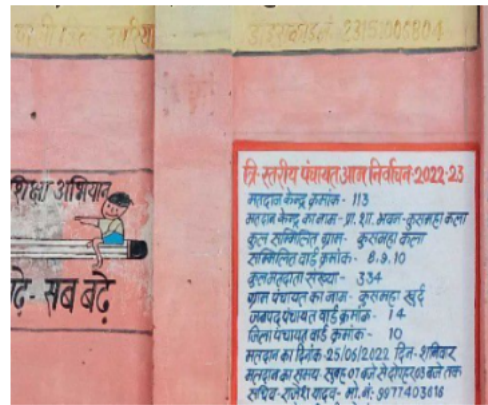 डाइस कोड नं. 23151006804
शिक्षा अभियान
ढ़े - सब बढ़े
त्रि-स्तरीय पंचायत आम निर्वाचन-2022-23
मतदान केन्द्र क्रमांक - 113
मतदान केन्द्र का नाम - प्रा. शा. भवन - कुसमहा कला
कुल सम्मिलित ग्राम - कुसमहा कला
सम्मिलित वार्ड क्रमांक - 8.9.10
कुल मतदाता संख्या - 334
ग्राम पंचायत का नाम - कुसमहा खुर्द
जनपद पंचायत वार्ड क्रमांक - 14
जिला पंचायत वार्ड क्रमांक - 10
मतदान का दिनांक - 25/06/2022 दिन - शनिवार
मतदान का समय सुबह 07 बजे से दोपहर 03 बजे तक
सचिव - राजेश यादव - मो. नं: 9977403616